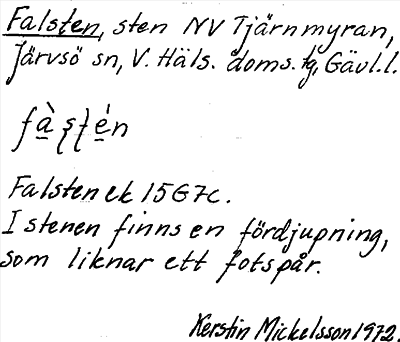 Falsten, sten NV Tjärnmyran,
Järvsö sn, V. Häls. doms. tg, Gävl.l.
Falsten ek 15G7c.
I stenen finns en fördjupning,
som liknar ett fotspår.
Kerstin Mickelsson 1972.